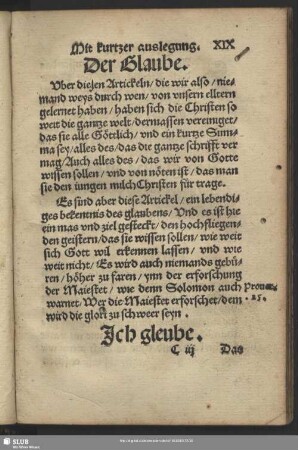 Mit kurtzer auslegung. XIX
Der Glaube.
Vber diesen Artickeln / die wir also / nie-
mand weys durch wen / von vnsern elltern
gelernet haben / haben sich die Christen so
weit die gantze welt / dermassen vereiniget /
das sie alle Göttlich / vnd ein kurtze Sum-
ma sey / alles des / das die gantze schrifft ver
mag / Auch alles des / das wir von Gotte
wissen sollen / vnd von nöten ist / das man
sie den iungen milch Christen für trage.
Es sind aber diese Artickel / ein lebendi-
ges bekentnis des glaubens / Vnd es ist hie
ein mas vnd ziel gesteckt / den hochfliegen-
den geistern / das sie wissen sollen / wie weit
sich Gott wil erkennen lassen / vnd wie
weit nicht / Es wird auch niemands gebü-
ren / höher zu faren / ynn der erforschung
der Maiestet / wie denn Solomon auch Prouer.
warnet / Wer die Maiestet erforschet / dem 25.
wird die glori zu schweer seyn.
Ich gleube.
C iij Das
SLUB